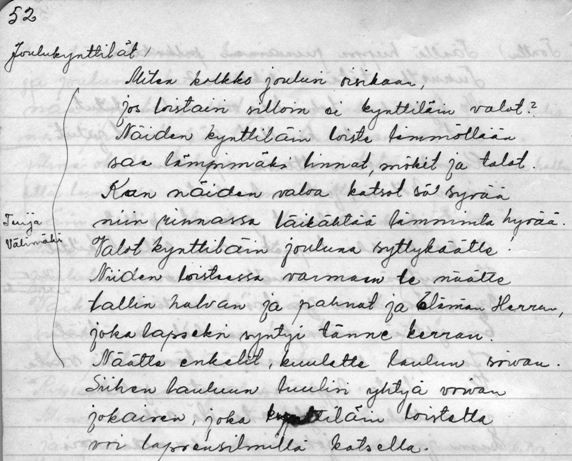 52
Joulukynttilät!
Miten kolkko joulun oisikaan,
jos loistain silloin ei kynttiläin valot?
Näiden kynttiläin loiste lämmöllään
saa lämpimäksi linnat, mökit ja talot.
Kun näiden valoa katsot sä syvää
niin rinnassa läikähtää lämmintä hyvää.
Tuija
Välimäki
Valot kynttiläin jouluna syttykäätte!
Niiden loisteessa varmaan te näätte
tallin halvan ja pahnat ja Elämän Herran,
joka lapseksi syntyi tänne kerran.
Näätte enkelit, kuulette laulun soivan.
Siihen lauluun luulisi yhtyä voivan
jokaisen, joka kynttiläin loistetta
voi lapsensilmillä katsella.